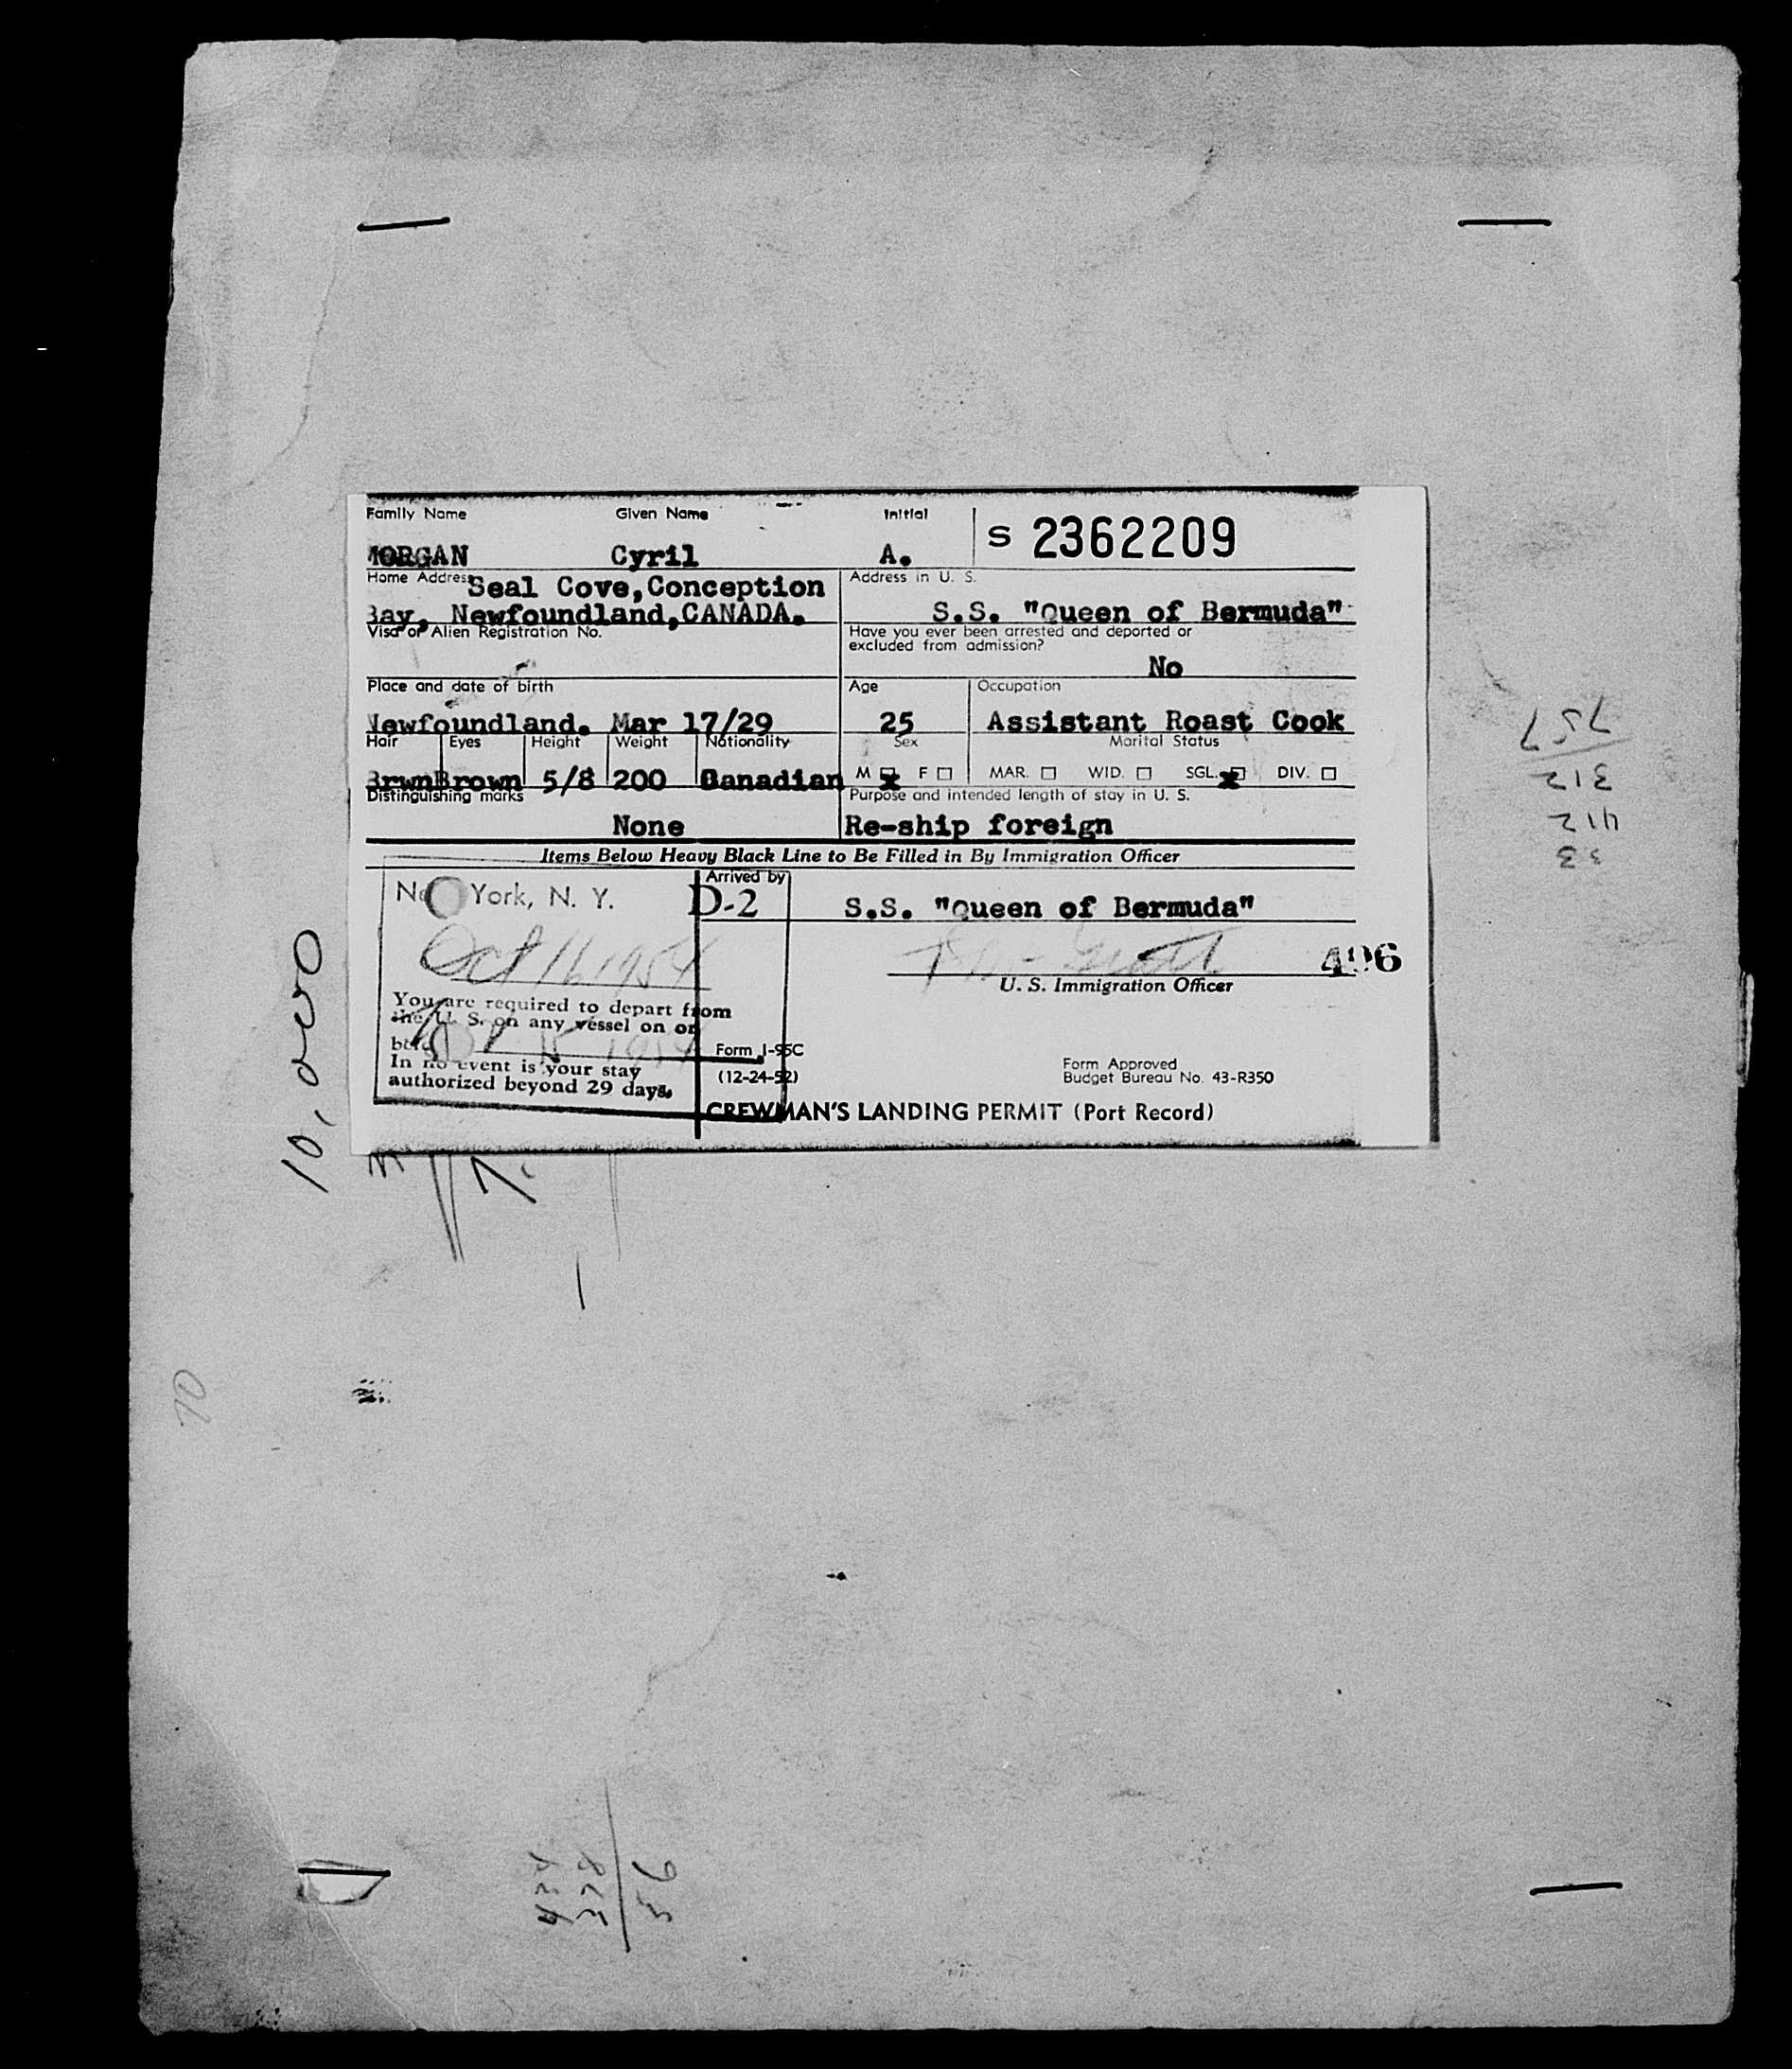 Family Name Given Name Initial
MORGAN Cyril A. S 2362209
Home Address Seal Cove,Conception
Bay, Newfoundland,CANADA.
Address in U. S.
S.S. "Queen of Bermuda"
Visa or Alien Registration No.
Have you ever been arrested and deported or
excluded from admission?
No
Place and date of birth
Newfoundland. Mar 17/29
Age
25
Occupation
Assistant Roast Cook
Hair Eyes Height Weight Nationality
Brwn Brown 5/8 200 Canadian
Sex
M x F
Marital Status
MAR. WID. SGL. x DIV.
Distinguishing marks
None
Purpose and intended length of stay in U. S.
Re-ship foreign
Items Below Heavy Black Line to Be Filled in By Immigration Officer
York, N. Y.
Oct 16 1954
You are required to depart from
the U. S. on any vessel on or
In no event is your stay
authorized beyond 29 days.
Arrived by
D-2
S.S. "Queen of Bermuda"
496
U. S. Immigration Officer
Form I-95C
(12-24-52)
Form Approved
Budget Bureau No. 43-R350
CREWMAN'S LANDING PERMIT (Port Record)
10, over
10
33
412
312
757